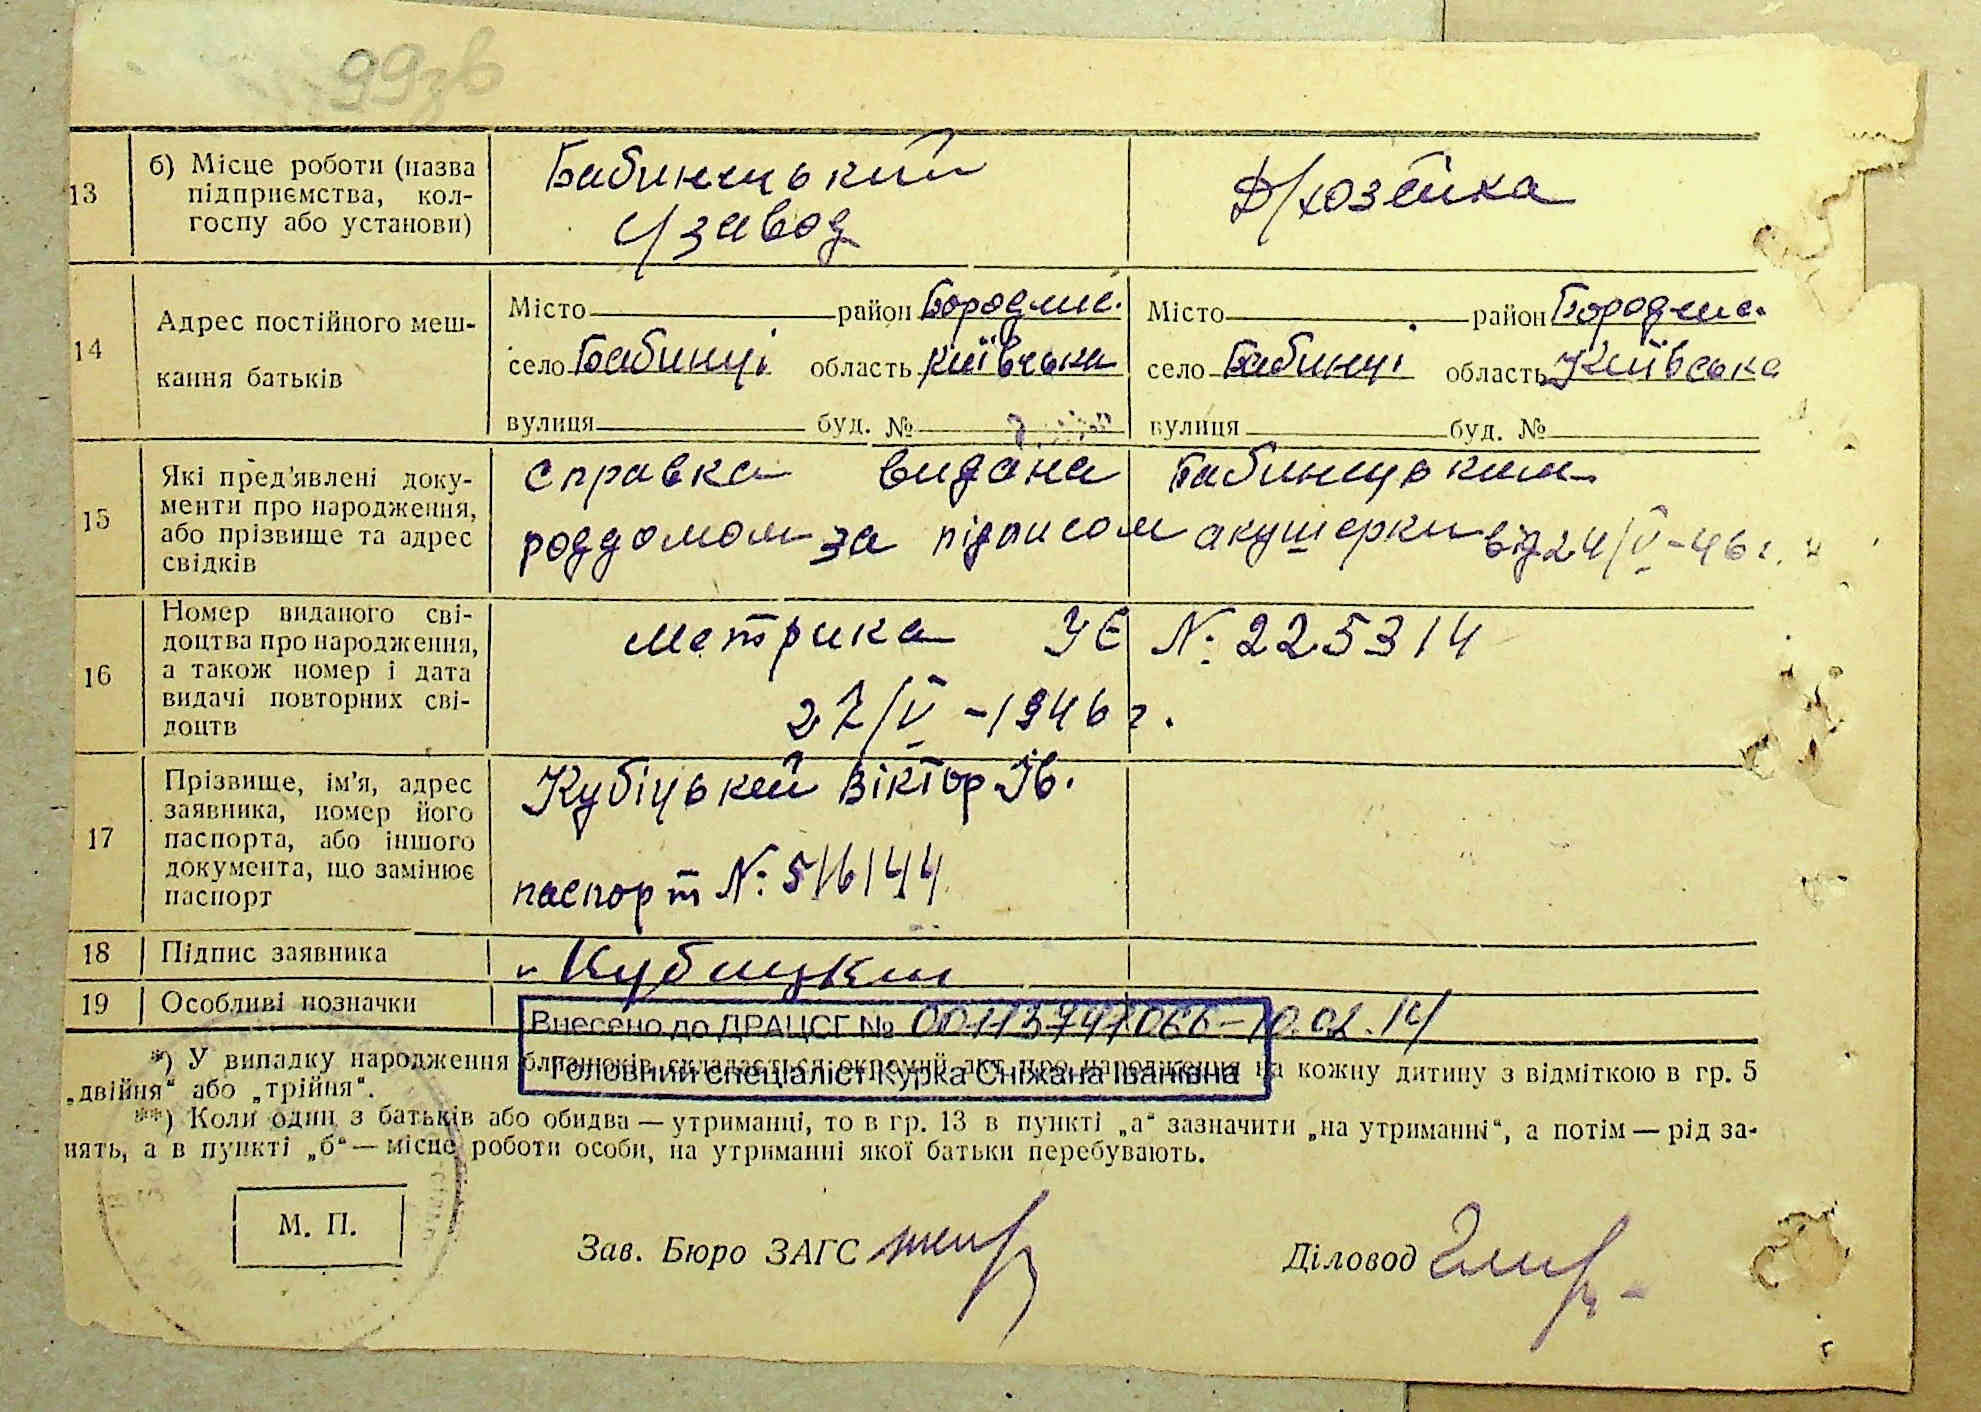 99зв
13 б) Місце роботи (назва підприємства, кол-госпу або установи)
Бабинецький
ц/завод
Д/хозейка
14 Адрес постійного меш-
кання батьків
Місто район Бородянс.
село Бабинці область Київська
вулиця буд. №
Місто район Бородянс.
село Бабинці область Київська
вулиця буд. №
15 Які пред'явлені доку-
менти про народження,
або прізвище та адрес
свідків
справка видана Бабинецьким
роддомом за підписом акушерки від 24/V-46 г.
16 Номер виданого сві-
доцтва про народження,
а також номер і дата
видачі повторних сві-
доцтв
метрика УЄ №: 225314
27/V -1946 г.
17 Прізвище, ім'я, адрес
заявника, номер його
паспорта, або іншого
документа, що замінює
паспорт
Кубіцький Віктор Ів.
паспорт №: 516144
18 Підпис заявника
Кубицкий
19 Особливі позначки
Внесено до ДРАЦСГ № 00113747066-10.02.14
Головний спеціаліст Курка Сніжана Іванівна
*) У випадку народження близнюків складається окремий акт про народження на кожну дитину з відміткою в гр. 5
„двійня“ або „трійня“.
**) Коли один з батьків або обидва — утриманці, то в гр. 13 в пункті „а“ зазначити „на утриманні“, а потім — рід за-
нять, а в пункті „б“ — місце роботи особи, на утриманні якої батьки перебувають.
М. П.
Зав. Бюро ЗАГС
Діловод